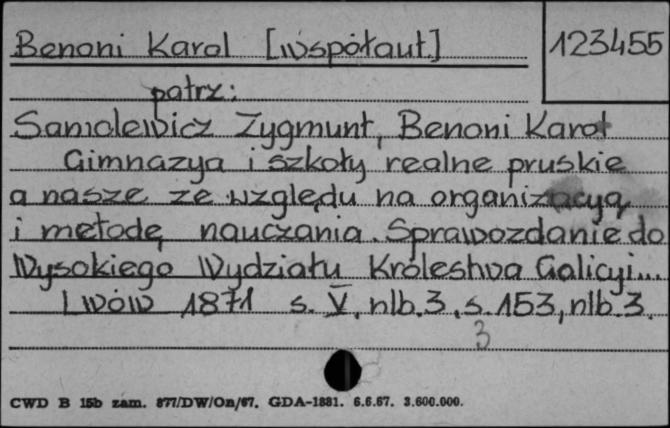 Benoni Karol [współaut.]
123455
patrz:
Samolewicz Zygmunt, Benoni Karol
Gimnazya i szkoły realne pruskie
a nasze ze względu na organizacyą
i metodę nauczania. Sprawozdanie do
Wysokiego Wydziału Królestwa Galicyi...
Lwów 1871 s. V, nlb. 3, s. 153, nlb. 3.
3
CWD B 15b zam. 877/DW/On/67. GDA-1881. 6.6.67. 3.600.000.